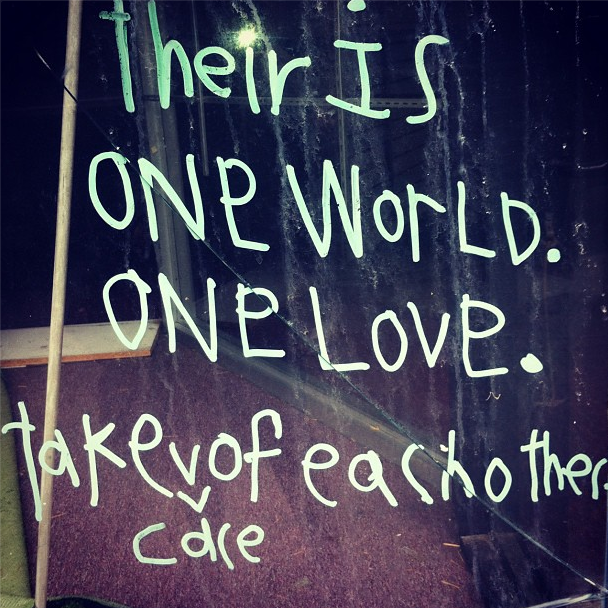 their is
ONE WorLD.
ONE LOVE.
take of each other
care